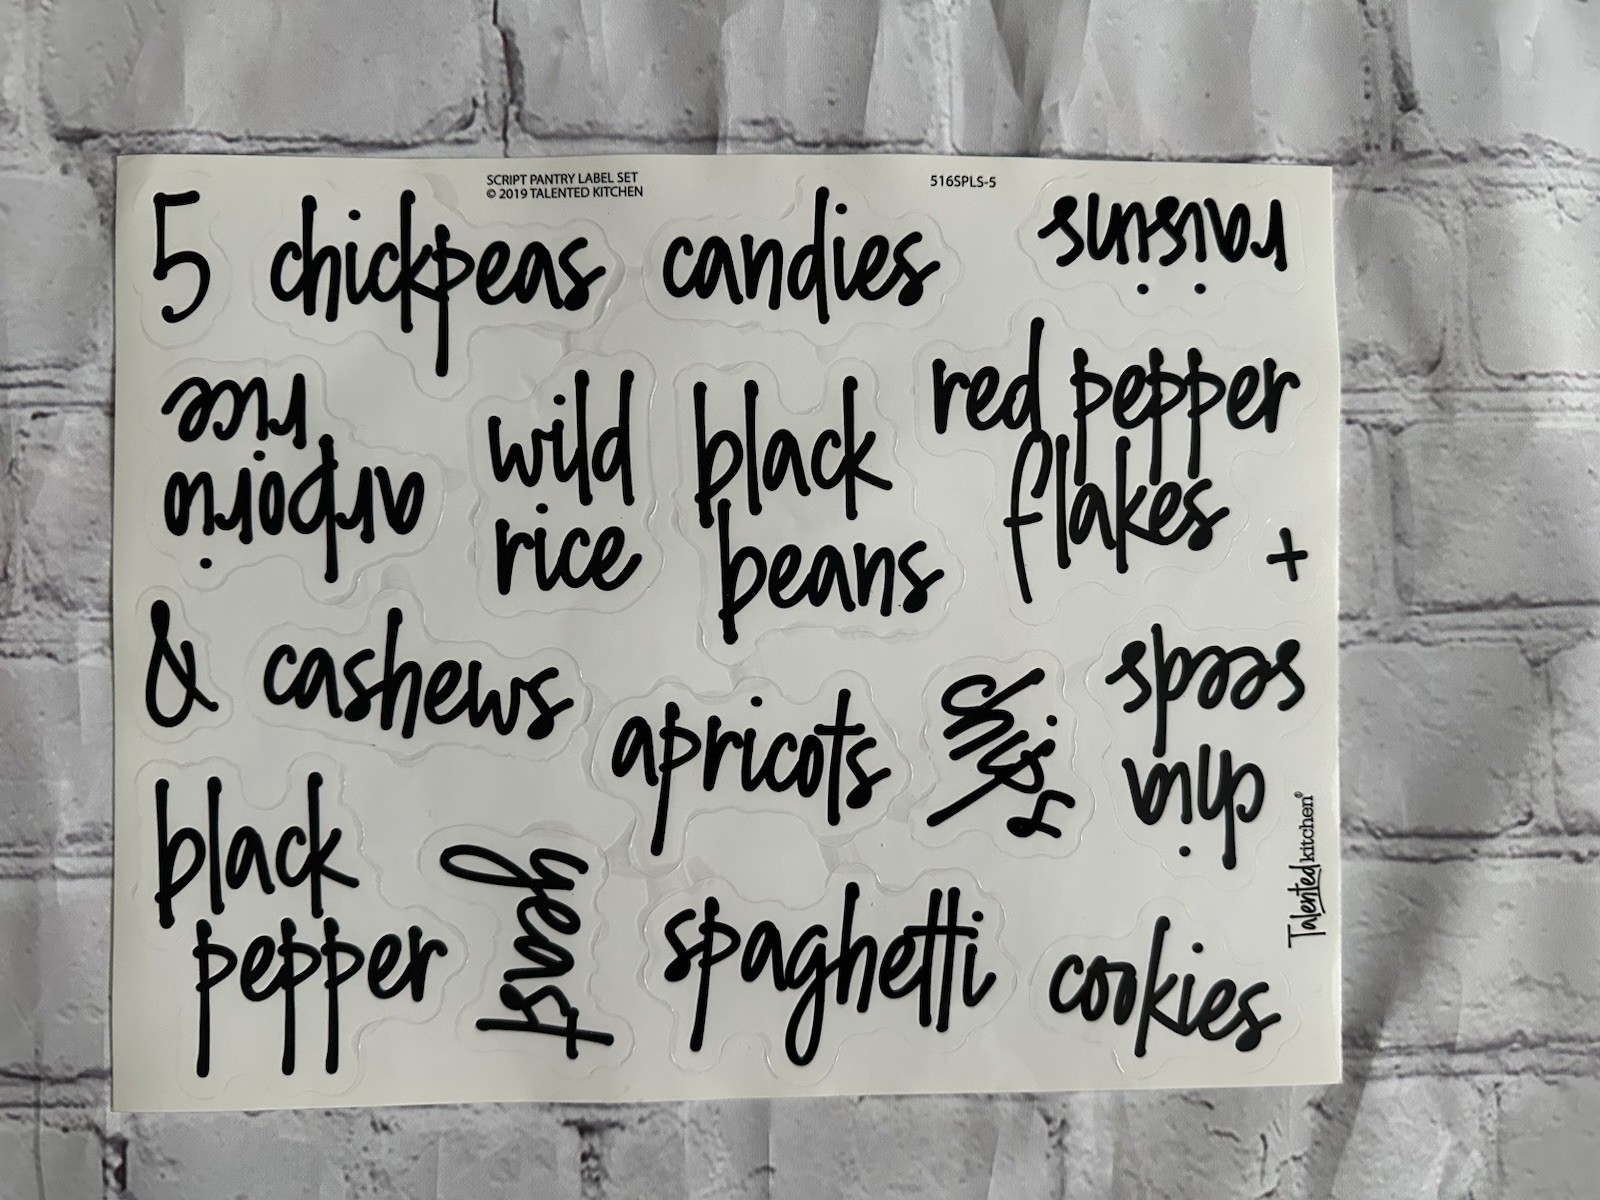 SCRIPT PANTRY LABEL SET
© 2019 TALENTED KITCHEN
516SPLS-5
5
chickpeas
candies
raisins
arborio
rice
wild
rice
black
beans
red pepper
flakes
+
&
cashews
apricots
chips
chia
seeds
black
pepper
yeast
spaghetti
cookies
Talented kitchen®